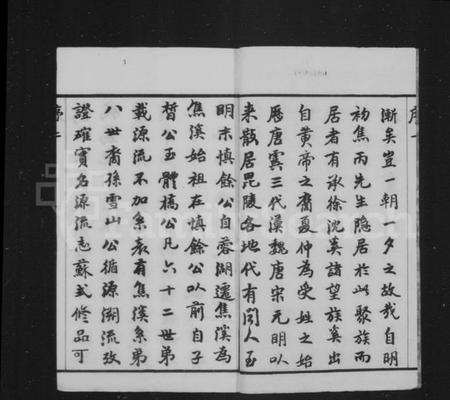 序一
漸矣豈一朝夕之故哉自明
初焦丙先生隱居於此聚族而
居者有承徐沈奚諸望族奚出
自黃帝之裔夏仲為受姓之始
歷唐虞三代漢魏唐宋元明以
來散居毘陵各地代有聞人至
明末慎餘公自蓉湖遷焦溪為
焦溪始祖在慎餘公以前自子
皙公至體橋公凡六十二世弟
載源流不加系表有焦溪系弟
八世裔孫雪山公循源溯流攷
證確實名源流志蘇式修品可
序二
FamilySearch